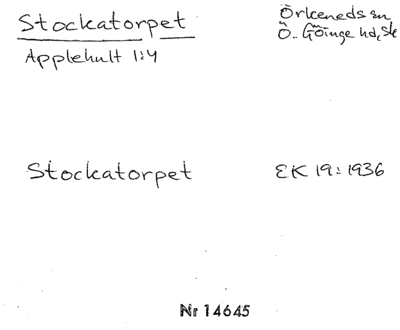 Stockatorpet
Örkeneds sn
Applehult 1:4
Ö. Göinge hd, Sk
Stockatorpet
EK 19: 1936
Nr 14645